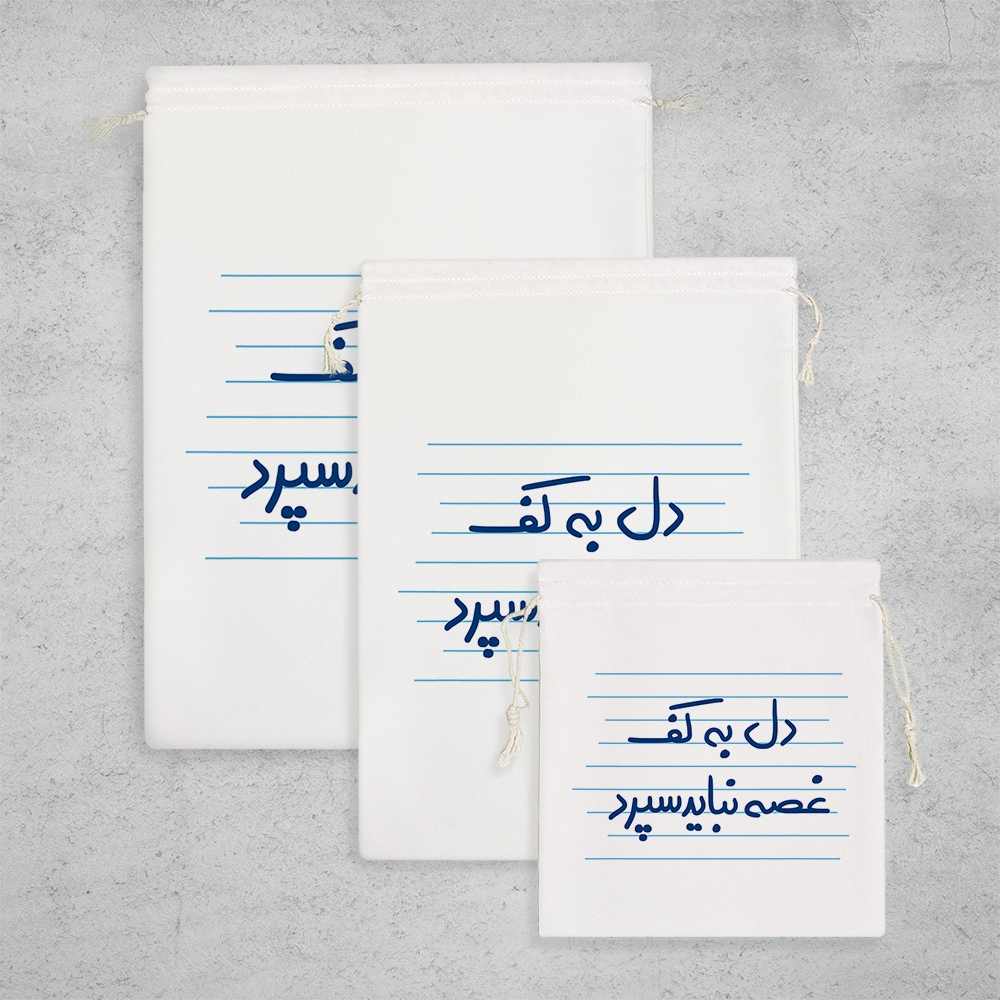 کف
سپرد
دل به کف
سپرد
دل به کف
غصه نباید سپرد